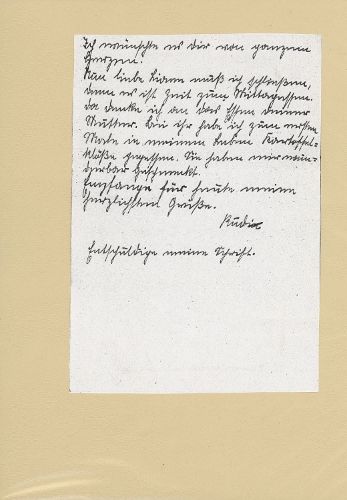 Ich wünschte es dir von ganzem
Herzen.
Nun liebe Liane muß ich schließen,
denn es ist Zeit zum Mittagessen.
Da denke ich an das Essen deiner
Mutter. Bei ihr habe ich zum ersten
Male in meinem Leben Kartoffel-
klöße gegessen. Sie haben mir wun-
derbar geschmeckt.
Empfange für heute meine
herzlichsten Grüße.
Rudi
Entschuldige meine Schrift.